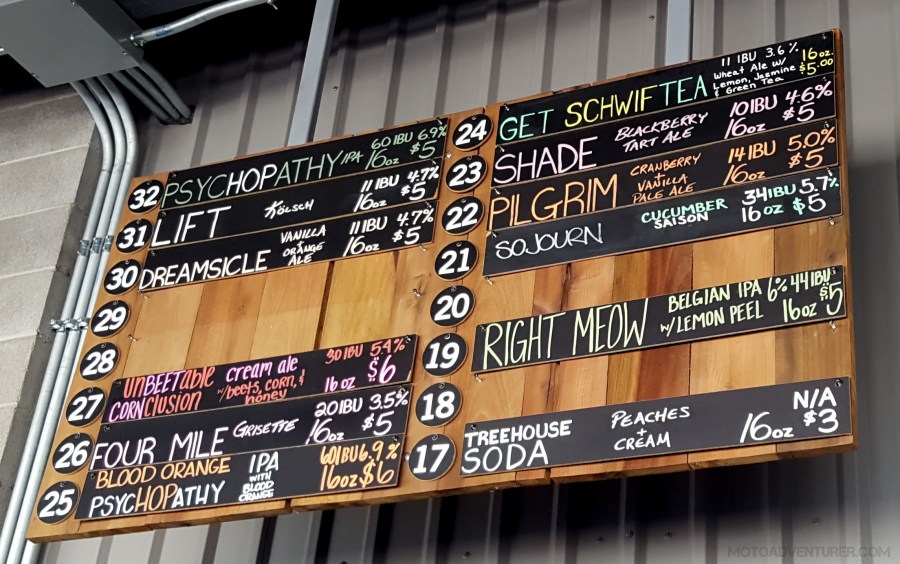 32 PSYCHOPATHY IPA 60 IBU 6.9%
16oz $5
31 LIFT KÖLSCH 11 IBU 4.7%
16oz $5
30 DREAMSICLE VANILLA + ORANGE ALE 11 IBU 4.7%
16oz $5
29
28
27 UNBEETABLE CORNCLUSION cream ale w/beets, corn, & honey 30 IBU 5.4%
16 oz $6
26 FOUR MILE GRISETTE 20 IBU 3.5%
16oz $5
25 BLOOD ORANGE PSYCHOPATHY IPA WITH BLOOD ORANGE 60 IBU 6.9%
16oz $6
24 GET SCHWIFTEA 11 IBU 3.6%
Wheat Ale w/ Lemon, Jasmine & Green Tea
16oz. $5.00
23 SHADE BLACKBERRY TART ALE 10 IBU 4.6%
16oz $5
22 PILGRIM CRANBERRY + VANILLA PALE ALE 14 IBU 5.0%
16oz $5
21 SOJOURN CUCUMBER SAISON 34 IBU 5.7%
16 oz $5
20
19 RIGHT MEOW BELGIAN IPA W/LEMON PEEL 6% 44 IBUs
16oz $5
18
17 TREEHOUSE SODA PEACHES + CREAM N/A
16oz $3
MOTOADVENTURER.COM